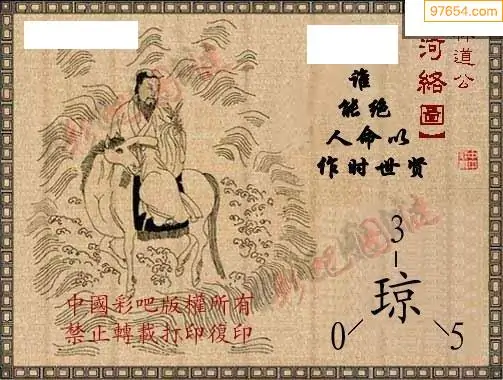 97654.com
道公
河絡圖】
谁
能绝
人命以
作时世贤
3
琼
0 5
中國彩吧版權所有
禁止轉載打印復印